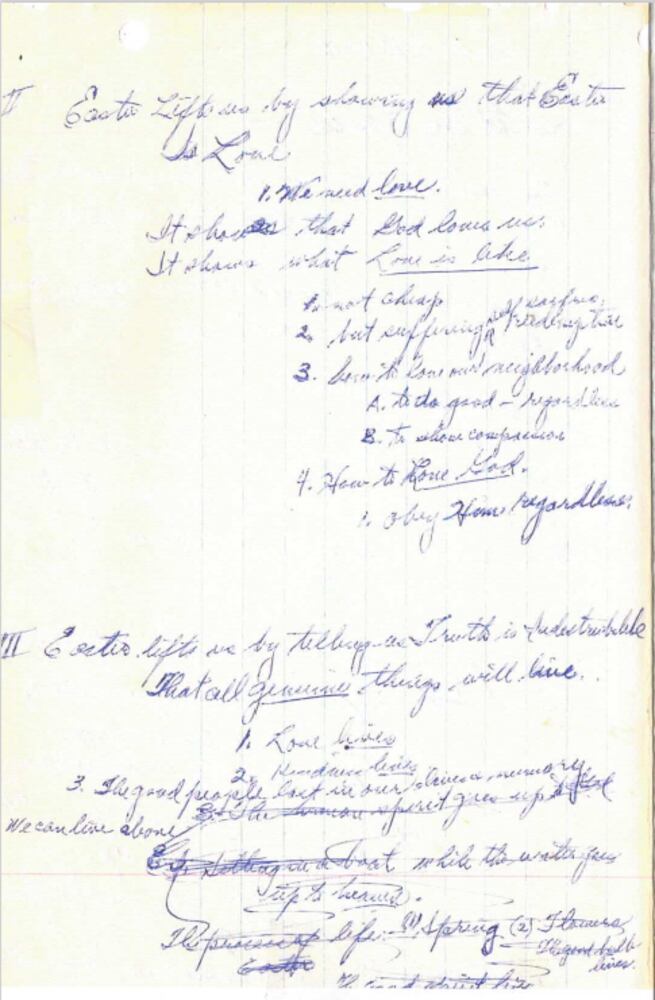 II Easter Lifts us by showing us that Easter
Is Love
1. We need love.
It shows that God loves us.
It shows what Love is like
1. not cheap
2. but suffering self sacrifice,
3. how to love our neighborhood
A. to do good - regardless
B. To show compassion
4. How to Love God.
1. obey Him regardless.
III Easter lifts us by telling us Truth is Indestructible
That all genuine things will live.
1. Love lives
2. Kindness lives
3. The good people in our memory,
3. The human spirit goes up to God
We can live above
in a boat while the water goes
up to
The life. (1) Spring (2) Flowers
The good
Easter lives.
The good spirit